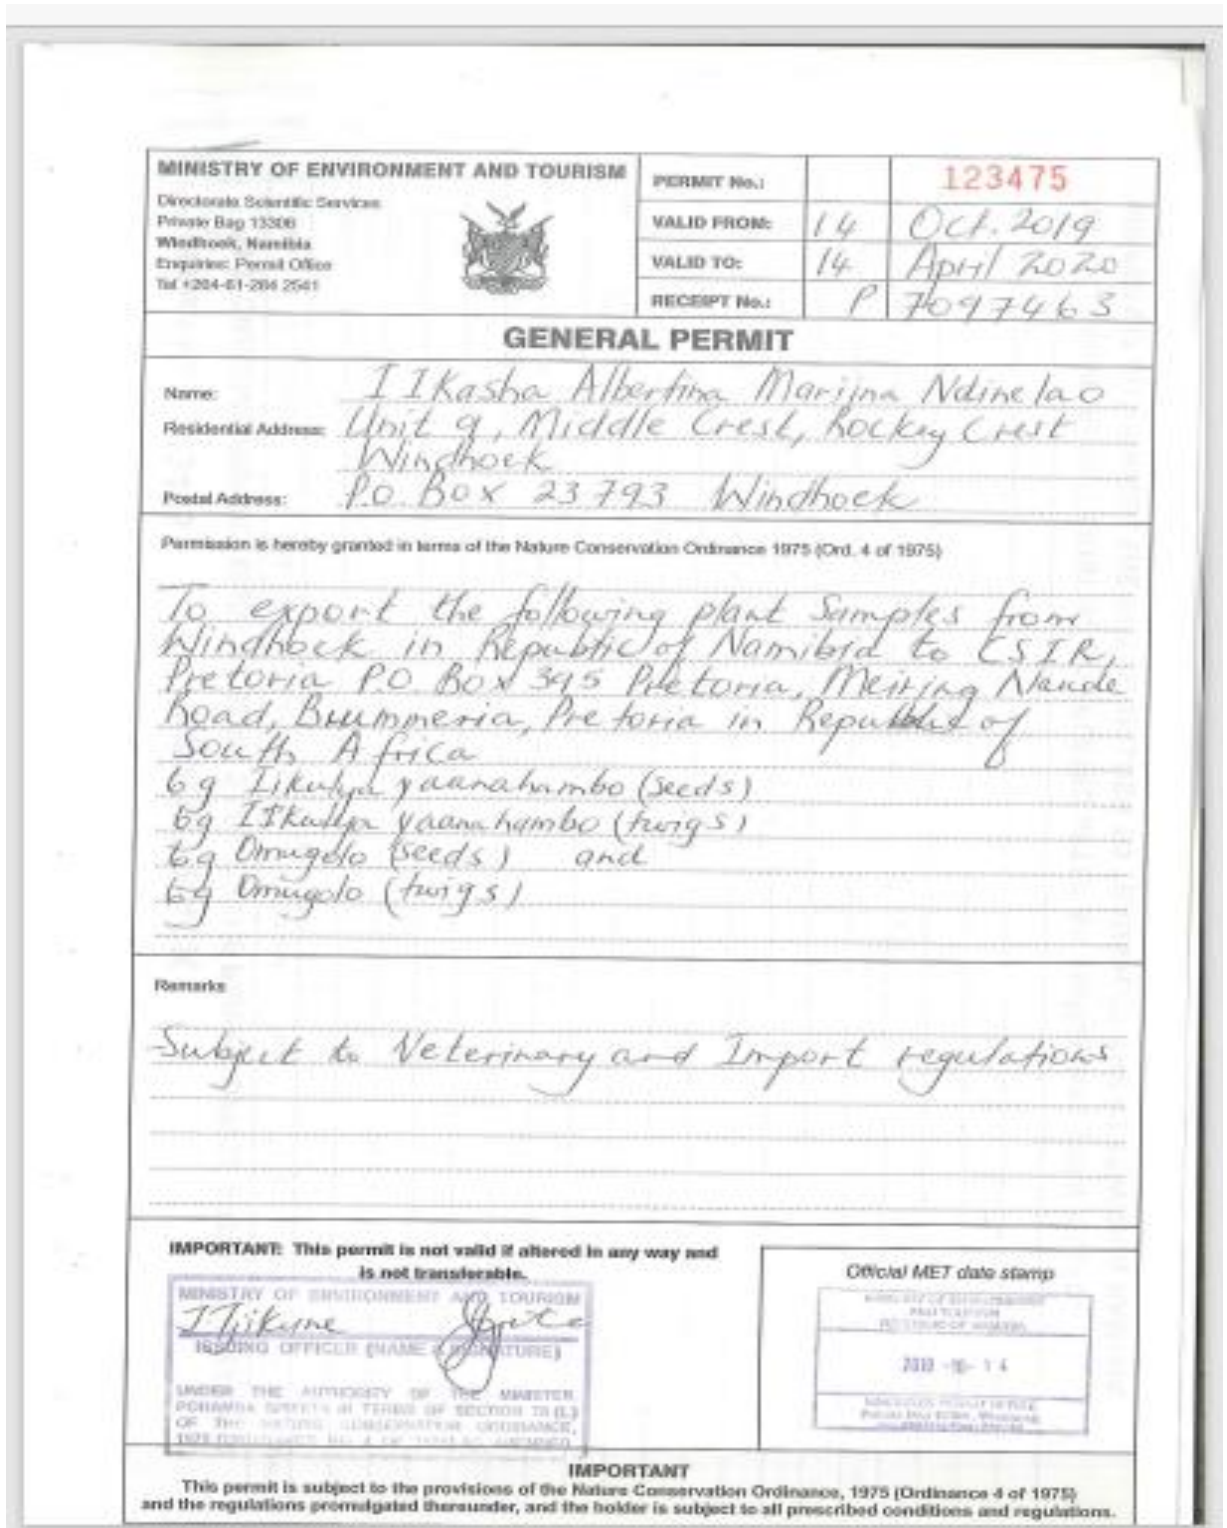 MINISTRY OF ENVIRONMENT AND TOURISM
Directorate Scientific Services
Private Bag 13306
Windhoek, Namibia
Enquiries: Permit Office
Tel +264-61-284 2541
PERMIT No.: 123475
VALID FROM: 14 Oct. 2019
VALID TO: 14 April 2020
RECEIPT No.: P 7097463
GENERAL PERMIT
Name: IIkasha Albertina Marijna Ndinelao
Residential Address: Unit 9, Middle Crest, Rockey Crest
Windhoek
Postal Address: P.O. Box 23793 Windhoek
Permission is hereby granted in terms of the Nature Conservation Ordinance 1975 (Ord. 4 of 1975)
To export the following plant Samples from
Windhoek in Republic of Namibia to CSIR,
Pretoria P.O. Box 395 Pretoria, Meiring Naude
Road, Brummeria, Pretoria in Republic of
South Africa
6g yaanahambo (seeds)
6g yaanahambo (twigs)
6g Omugolo (seeds) and
6g Omugolo (twigs)
Remarks
Subject to Veterinary and Import regulations
IMPORTANT: This permit is not valid if altered in any way and
is not transferable.
MINISTRY OF ENVIRONMENT AND TOURISM
ISSUING OFFICER (NAME & SIGNATURE)
UNDER THE AUTHORITY OF THE MINISTER
IN TERMS OF SECTION
OF THE NATURE CONSERVATION ORDINANCE,
Official MET date stamp
2019 -10- 14
IMPORTANT
This permit is subject to the provisions of the Nature Conservation Ordinance, 1975 (Ordinance 4 of 1975)
and the regulations promulgated thereunder, and the holder is subject to all prescribed conditions and regulations.